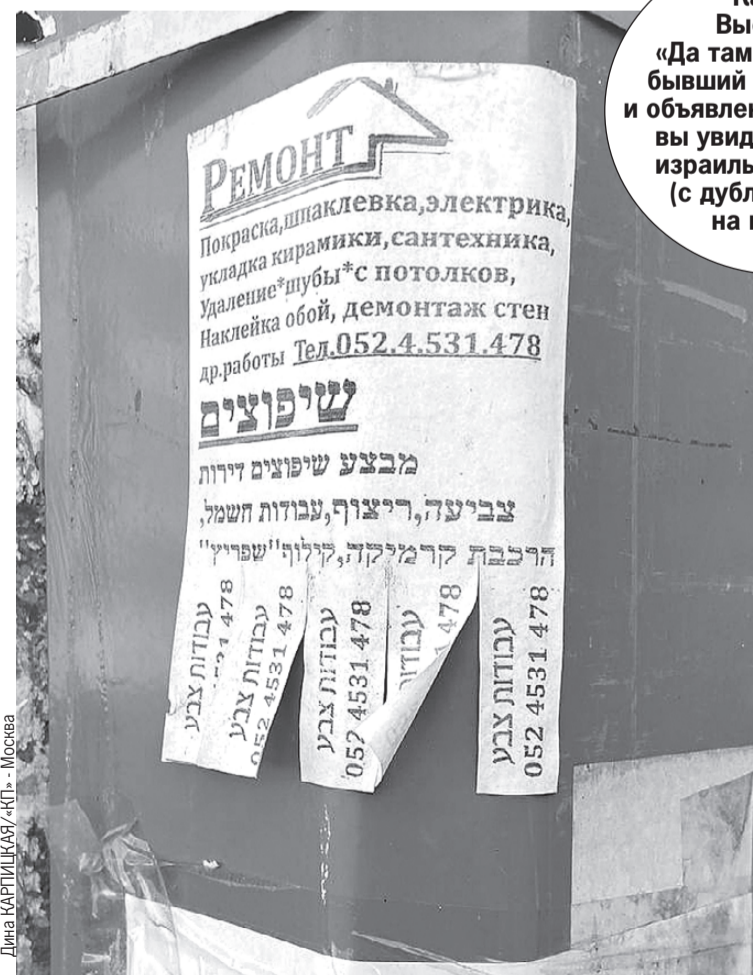 Вы
«Да там
бывший
и объявлен
вы увид
израиль
(с дубл
на
РЕМОНТ
Покраска,шпаклевка,электрика,
укладка кирамики,сантехника,
Удаление*шубы*с потолков,
Наклейка обой, демонтаж стен
др.работы Тел.052.4.531.478
שיפוצים
מבצע שיפוצים דירות
צביעה,ריצוף,עבודות חשמל,
הרכבת קרמיקה,קילוף"שפריץ"
עבודות צבע
478
עבודות צבע
052 4531 478
עבודות צבע
052 4531 478
478
עבודות צבע
052 4531 478
Дина КАРПИЦКАЯ/«КП» - Москва